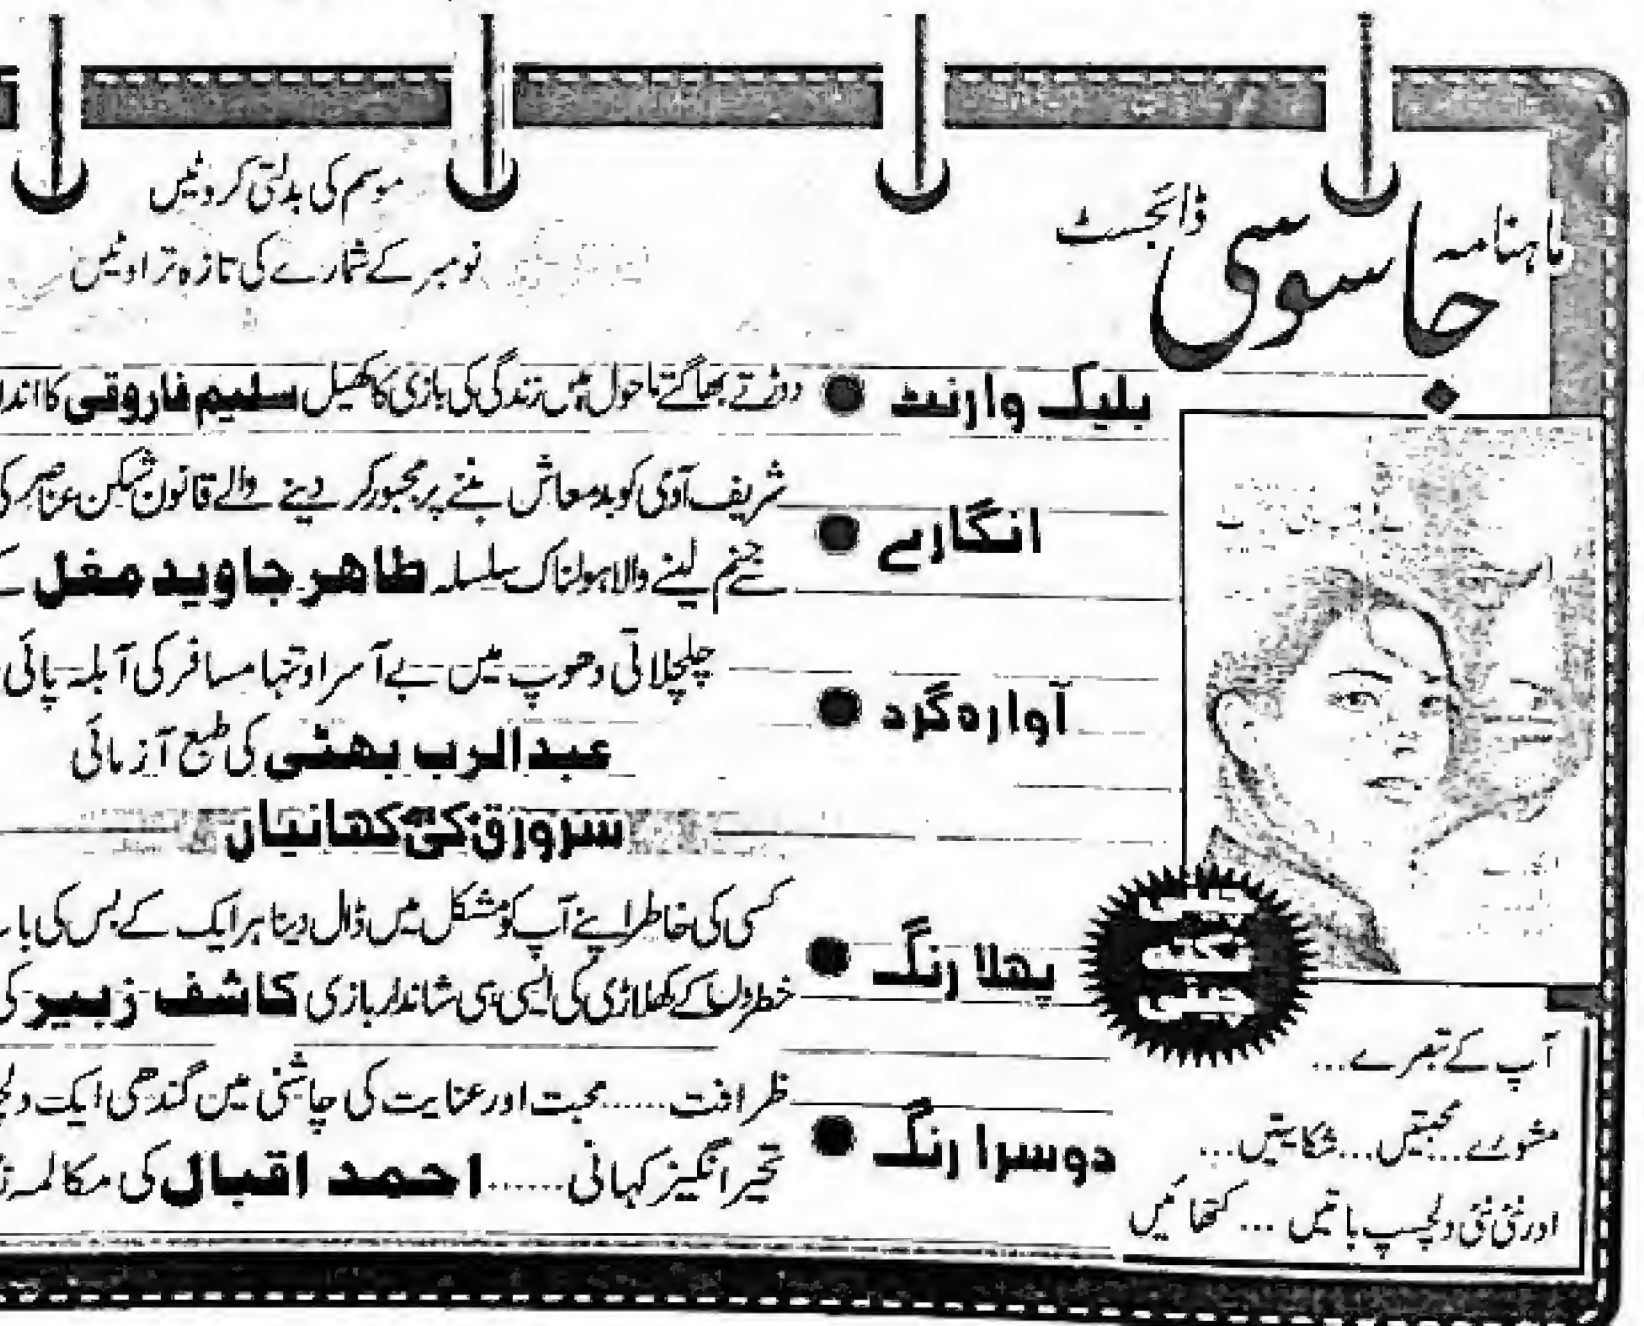 ماہنامہ
جاسوسی
ڈائجسٹ
موسم کی بدلتی کروٹیں
نومبر کے شمارے کی تازہ تراوٹیں
بلیک وارنٹ ● دوڑتے بھاگتے ماحول میں زندگی کی بازی کا کھیل سلیم فاروقی کا
شریف آدمی کو بدمعاش بننے پر مجبور کر دینے والے قانون شکن عناصر کی
انگارے ●
جنم لینے والا ہولناک سلسلہ طاہر جاوید مغل
چلچلاتی دھوپ میں بے آسرا و تنہا مسافر کی آبلہ پائی
آوارہ گرد ●
عبدالرب بھٹی کی طبع آزمائی
سرورق کی کہانیاں
کسی کی خاطر اپنے آپ کو مشکل میں ڈال دینا ہر ایک کے بس کی
پہلا رنگ ●
خطروں کے کھلاڑی کی ایسی ہی شاندار بازی کاشف زبیر کی
ظرافت...... محبت اور عنایت کی چاشنی میں گندھی ایک
دوسرا رنگ ●
تحیر انگیز کہانی...... احمد اقبال کی مکالمہ
چینی
نکتہ
چینی
آپ کے تبصرے...
مشورے... محبتیں... شکایتیں...
اور نئی نئی دلچسپ باتیں ... کتھائیں